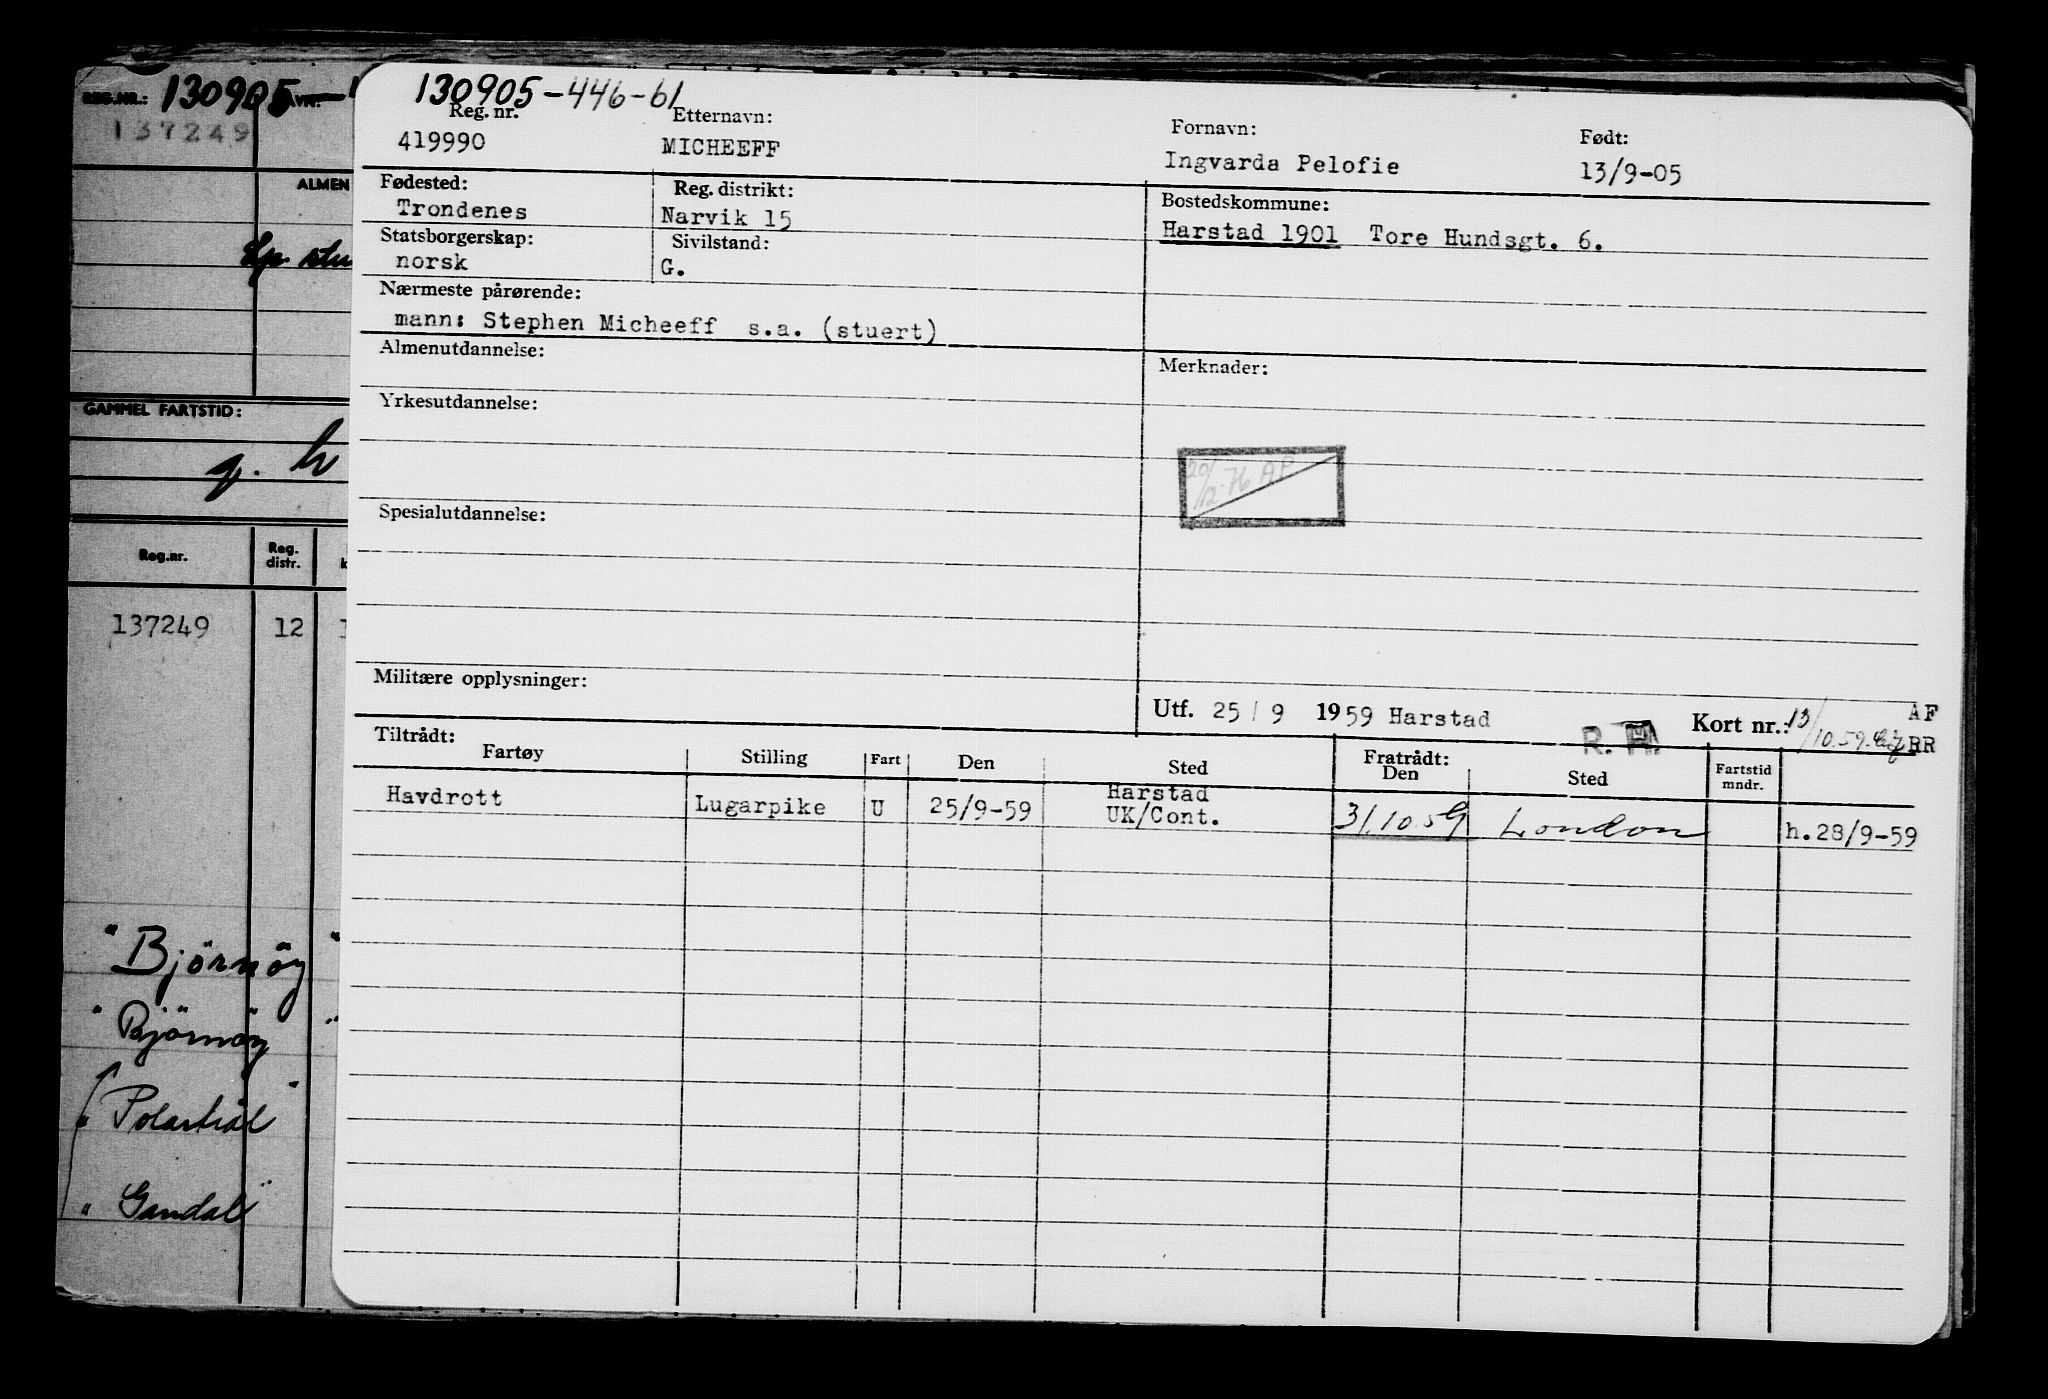 REG.NR.: 130905-
137249
ALMEN
Sp. stu
GAMMEL FARTSTID:
g. h
Reg.nr. Reg. distr. k
137249 12
"Björnöy"
"Björnöy"
"Polartral"
"Gandal"
130905-446-61
Reg. nr. Etternavn: Fornavn: Født:
419990 MICHEEFF Ingvarda Pelofie 13/9-05
Fødested: Reg. distrikt: Bostedskommune:
Trondenes Narvik 15 Harstad 1901 Tore Hundsgt. 6.
Statsborgerskap: Sivilstand:
norsk G.
Nærmeste pårørende:
mann: Stephen Micheeff s.a. (stuert)
Almenutdannelse: Merknader:
Yrkesutdannelse:
20/12-76 AP
Spesialutdannelse:
Militære opplysninger:
Utf. 25/9 1959 Harstad R. H. Kort nr.: 13/10.59. AF
RR
Tiltrådt: Fratrådt:
Fartøy Stilling Fart Den Sted Den Sted Fartstid mndr.
Havdrott Lugarpike U 25/9-59 Harstad UK/Cont. 31.10.59 London h.28/9-59